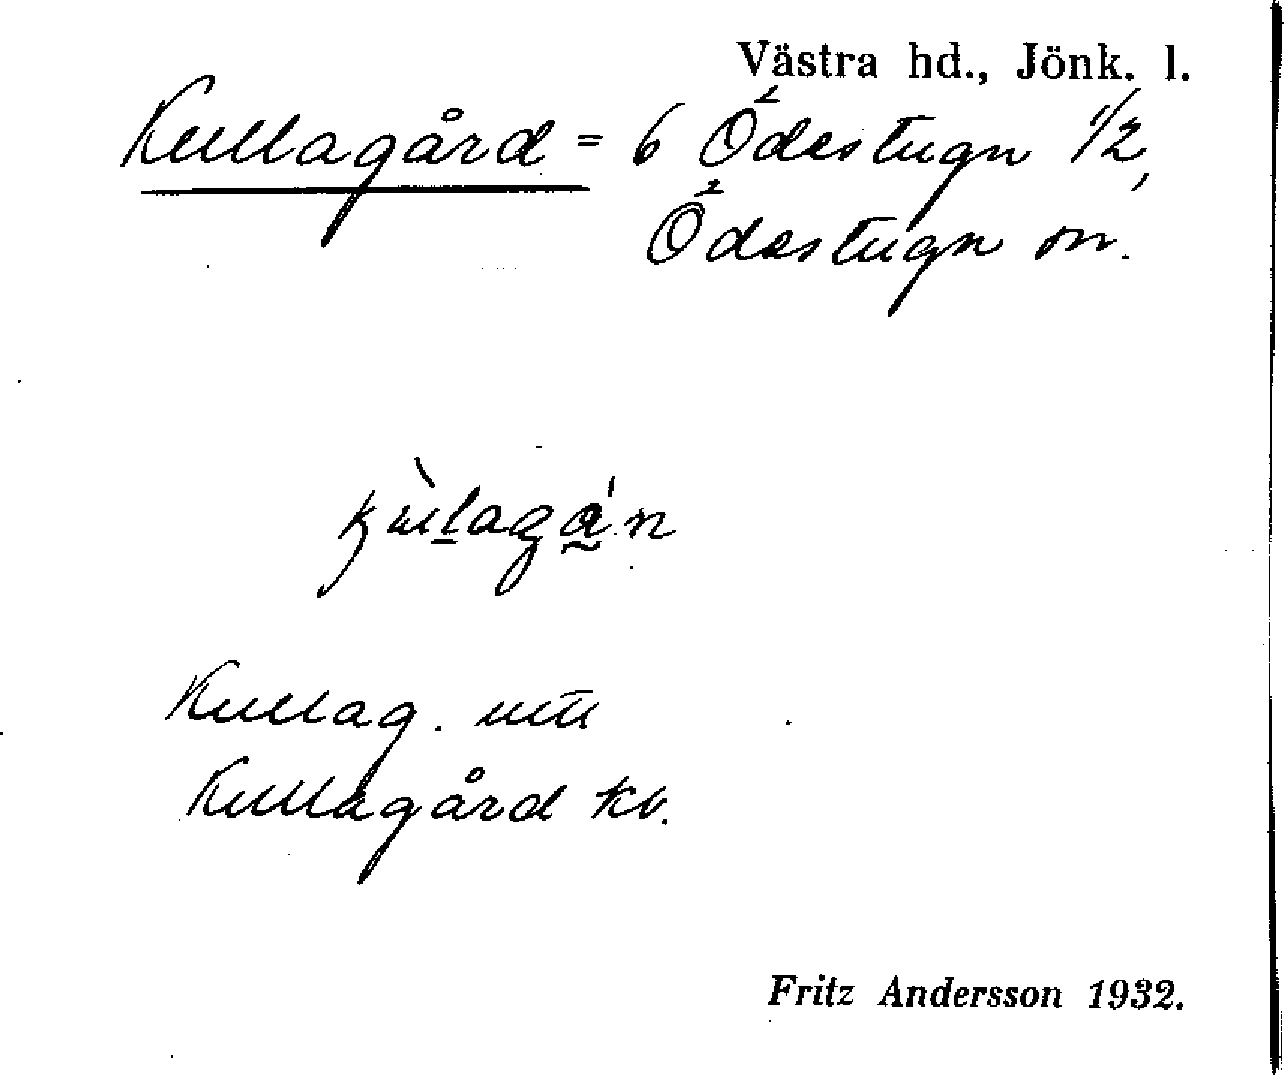 Västra hd., Jönk. l.
Kullagård = 6 Ödestugu 1/2,
Ödestugu sn.
Kullag. utu
Kullagård kv.
Fritz Andersson 1932.